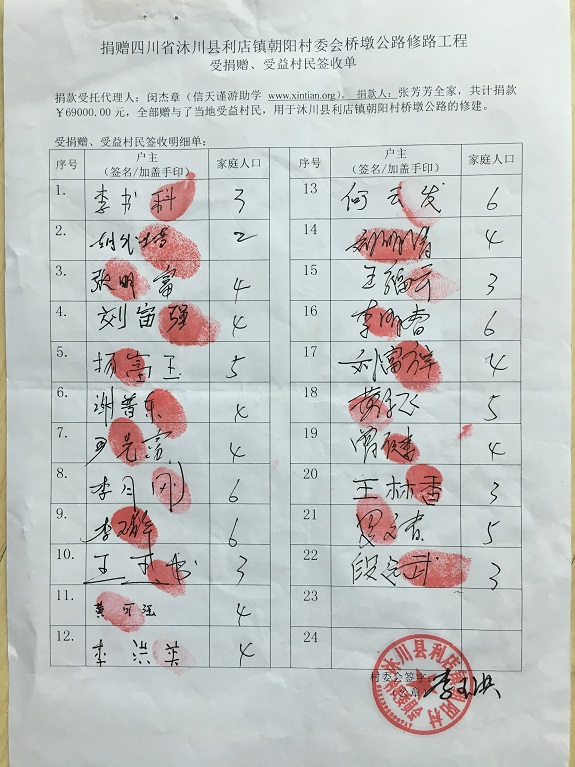 捐赠四川省沐川县利店镇朝阳村委会桥墩公路修路工程
受捐赠、受益村民签收单
捐款受托代理人：闵杰章（信天谨游助学 www.xintian.org），捐款人：张芳芳全家，共计捐款
￥69000.00 元，全部赠与了当地受益村民，用于沐川县利店镇朝阳村桥墩公路的修建。
受捐赠、受益村民签收明细单：
序号 户主（签名/加盖手印） 家庭人口
1. 李书科 3
2. 2
3. 张明富 4
4. 刘富强 4
5. 杨富玉 5
6. 谢普东 4
7. 4
8. 李月刚 6
9. 李 6
10. 王 书 3
11. 黄可强 4
12. 李洪英 4
序号 户主（签名/加盖手印） 家庭人口
13 何云发 6
14 4
15 王福云 3
16 李明春 6
17 刘富 4
18 黄 飞 5
19 4
20 王林香 3
21 罗 5
22 段 武 3
23
24
村委会签字：
（公章）
沐川县利店镇朝阳村
村民委员会